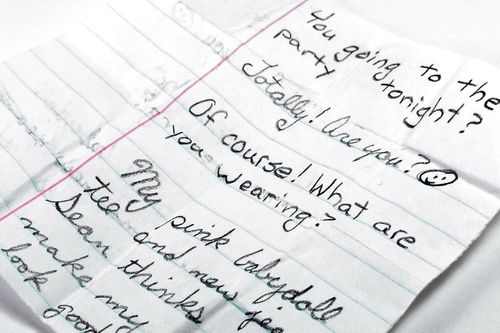 You going to the
party tonight?
Totally! Are you?
Of course! What are
you wearing?
My pink babydoll
tee and new
Sean thinks
make my
look good